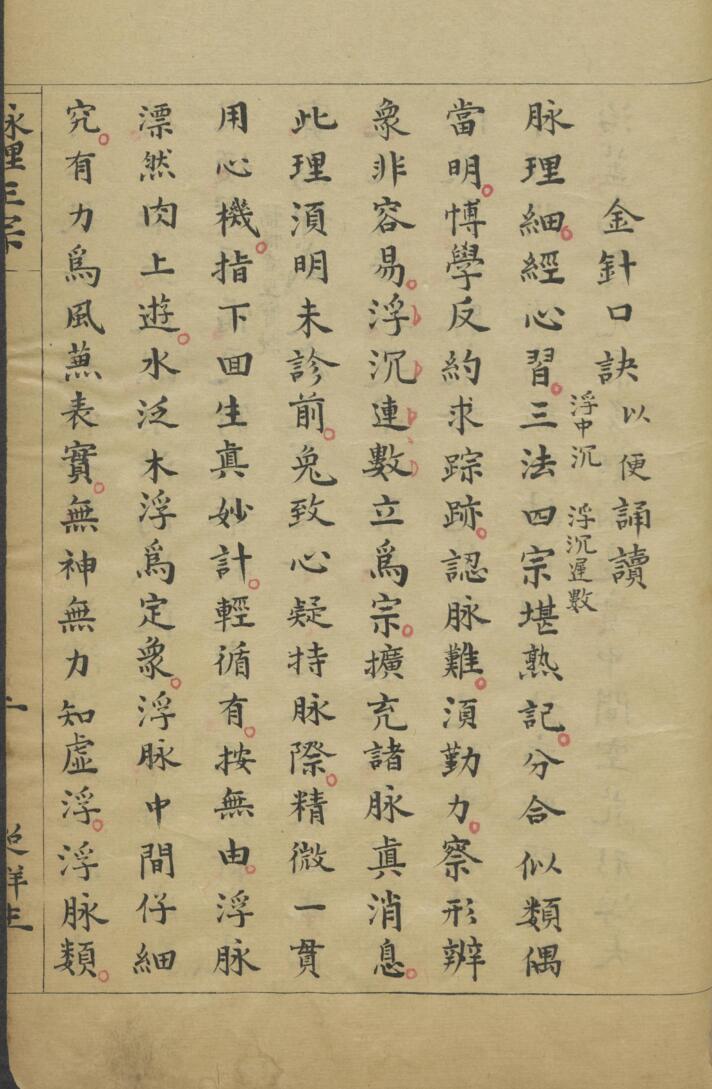 金針口訣以便誦讀
脉理細。經心習。三法四宗堪熟記。分合似類偶
浮中沉
浮沉遲數
當明。愽學反約求踪跡。認脉難。湏勤力。察形辨
象非容易。浮沉連數立爲宗。擴充諸脉眞消息。
此理湏明未診前。免致心疑持脉際。精微一貫
用心機。指下回生眞妙計。輕循有。按無由。浮脉
漂然肉上遊。水泛木浮爲定象。浮脉中間仔細
究。有力爲風蕪表實。無神無力知虛浮。浮脉類。
脉理三宗
一